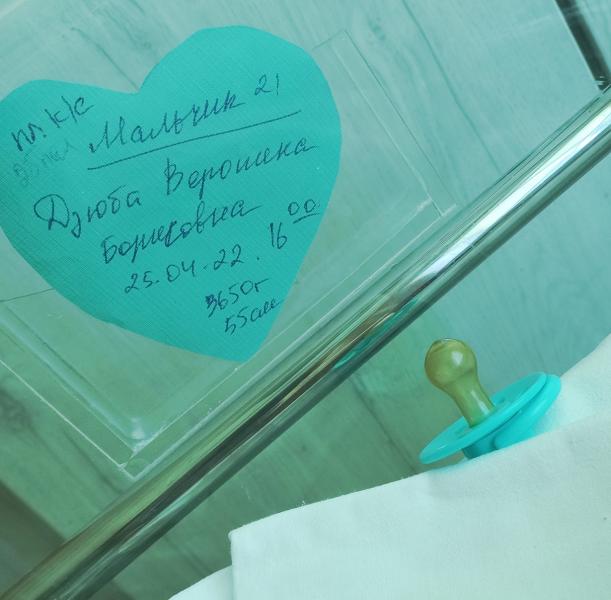 пл. к/с
Мальчик 21
Дзюба Вероника
Борисовна
25.04.22. 16 00
3650г
55см